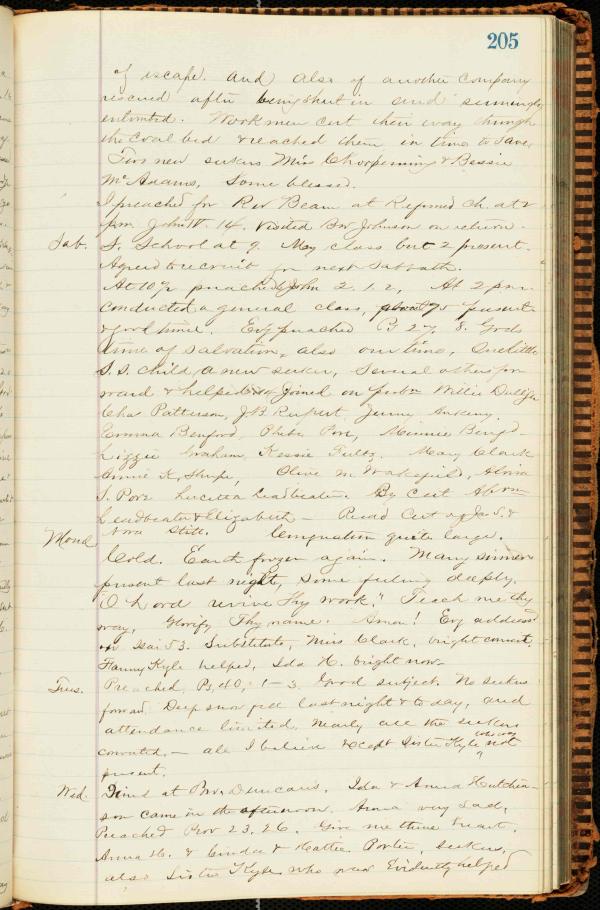 205
of escape. And also of another Company
rescued after being shut in and seemingly
entombed. Workmen cut their way through
the Coal bed & reached them in time to save.
Two new seekers Miss Chorpenning & Bessie
McAdams, Some blessed.
I preached for Rev Beam at Reformed Ch. at 2
pm. John 14. Visited Bro Johnson on return.
Sab. S. School at 9. My class but 2 present.
Agreed to recruit for next Sabbath.
At 10½ preached John 2. 1. 2, At 2 pm.
conducted a general class, about 75 present
& good time. Evg preached 27, 8. Gods
time of salvation, also our time, One little
S. S. child, a new seeker, Several others for
ward & helped 14 Joined on prob Willie
Chas Patterson, J B Rupert, Jenny
Emma Benford, Phebe Pore, Minnie Benf'd
Lizzie Graham, Kessie Fultz. Mary Clark
Annie K, Olive M Wakefield,
S. Pore Lucetta Leadbeater. By Cert
Leadbeater & Elizabeth — Read Cert of Jas S. &
Nora Still. Congregation quite large.
Mond Cold. Earth frozen again. Many sinners
present last night, some feeling deeply.
"O Lord revive Thy work." Teach me thy
way, Glorify Thy name. Amen! Evg address
on Isai 53. Substitute, Miss Clark, bright convert,
Fanny Kyle helped, Ida H. bright now
Tues. Preached, Ps, 40, 1–3. Good subject. No seekers
forward. Deep snow fell last night & to day, and
attendance limited. Nearly all the seekers
converted, — all I believe except Sister Kyle not
present.
Wed. Dined at Bro. Duncans. Ida & Anna Hutchin-
son came in the afternoon. Anna very sad,
Preached Prov 23, 26. Give me thine heart.
Anna H. & Cinda & Hattie Porter, seekers,
also Sister Kyle who was Evidently helped